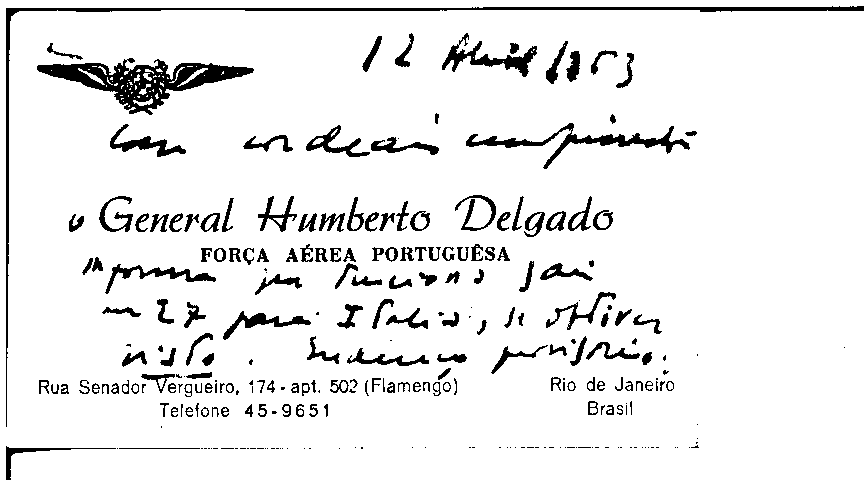 12 Abril 1963
Com cordeais cumprimentos
o General Humberto Delgado
FORÇA AÉREA PORTUGUÊSA
informa que tenciona sair
em 27 para Italia, se obtiver
visto. Endereço provisório.
Rua Senador Vergueiro, 174 - apt. 502 (Flamengo) Rio de Janeiro
Telefone 45-9651 Brasil